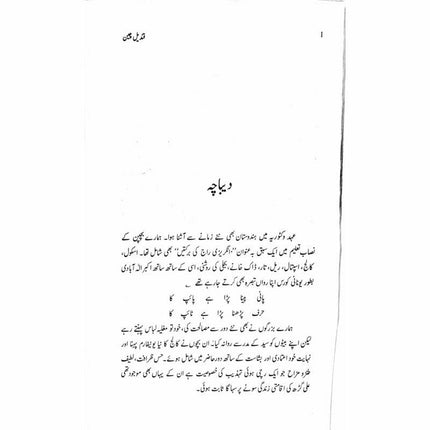 قندیل چین
1
دیباچہ
عہد وکٹوریہ میں ہندوستان بھی نئے زمانے سے آشنا ہوا۔ ہمارے بچپن کے
نصاب تعلیم میں ایک سبق بہ عنوان "انگریزی راج کی برکتیں" بھی شامل تھا۔ اسکول،
کالج، اسپتال، ریل، تار، ڈاک خانے، بجلی کی روشنی، اسی کے ساتھ ساتھ اکبر الہ آبادی
بطور یونانی کورس اپنا رواں تبصرہ بھی کرتے جا رہے تھے ؎
پانی پینا پڑا ہے پائپ کا
حرف پڑھنا پڑا ہے ٹائپ کا
ہمارے بزرگوں نے بھی نئے دور سے مصالحت کی، خود تو مغلیہ لباس پہنتے رہے
لیکن اپنے بیٹوں کو سید کے مدرسے روانہ کیا۔ ان بچوں نے کالج کا نیا یونیفارم پہنا اور
نہایت خود اعتمادی اور بشاشت کے ساتھ دور حاضر میں شامل ہوئے۔ حس ظرافت، لطیف
طنز و مزاح جو ایک رچی ہوئی تہذیب کی خصوصیت ہے ان کے یہاں بھی موجود تھی
علی گڑھ کی اقامتی زندگی سونے پر سہاگا ثابت ہوئی۔